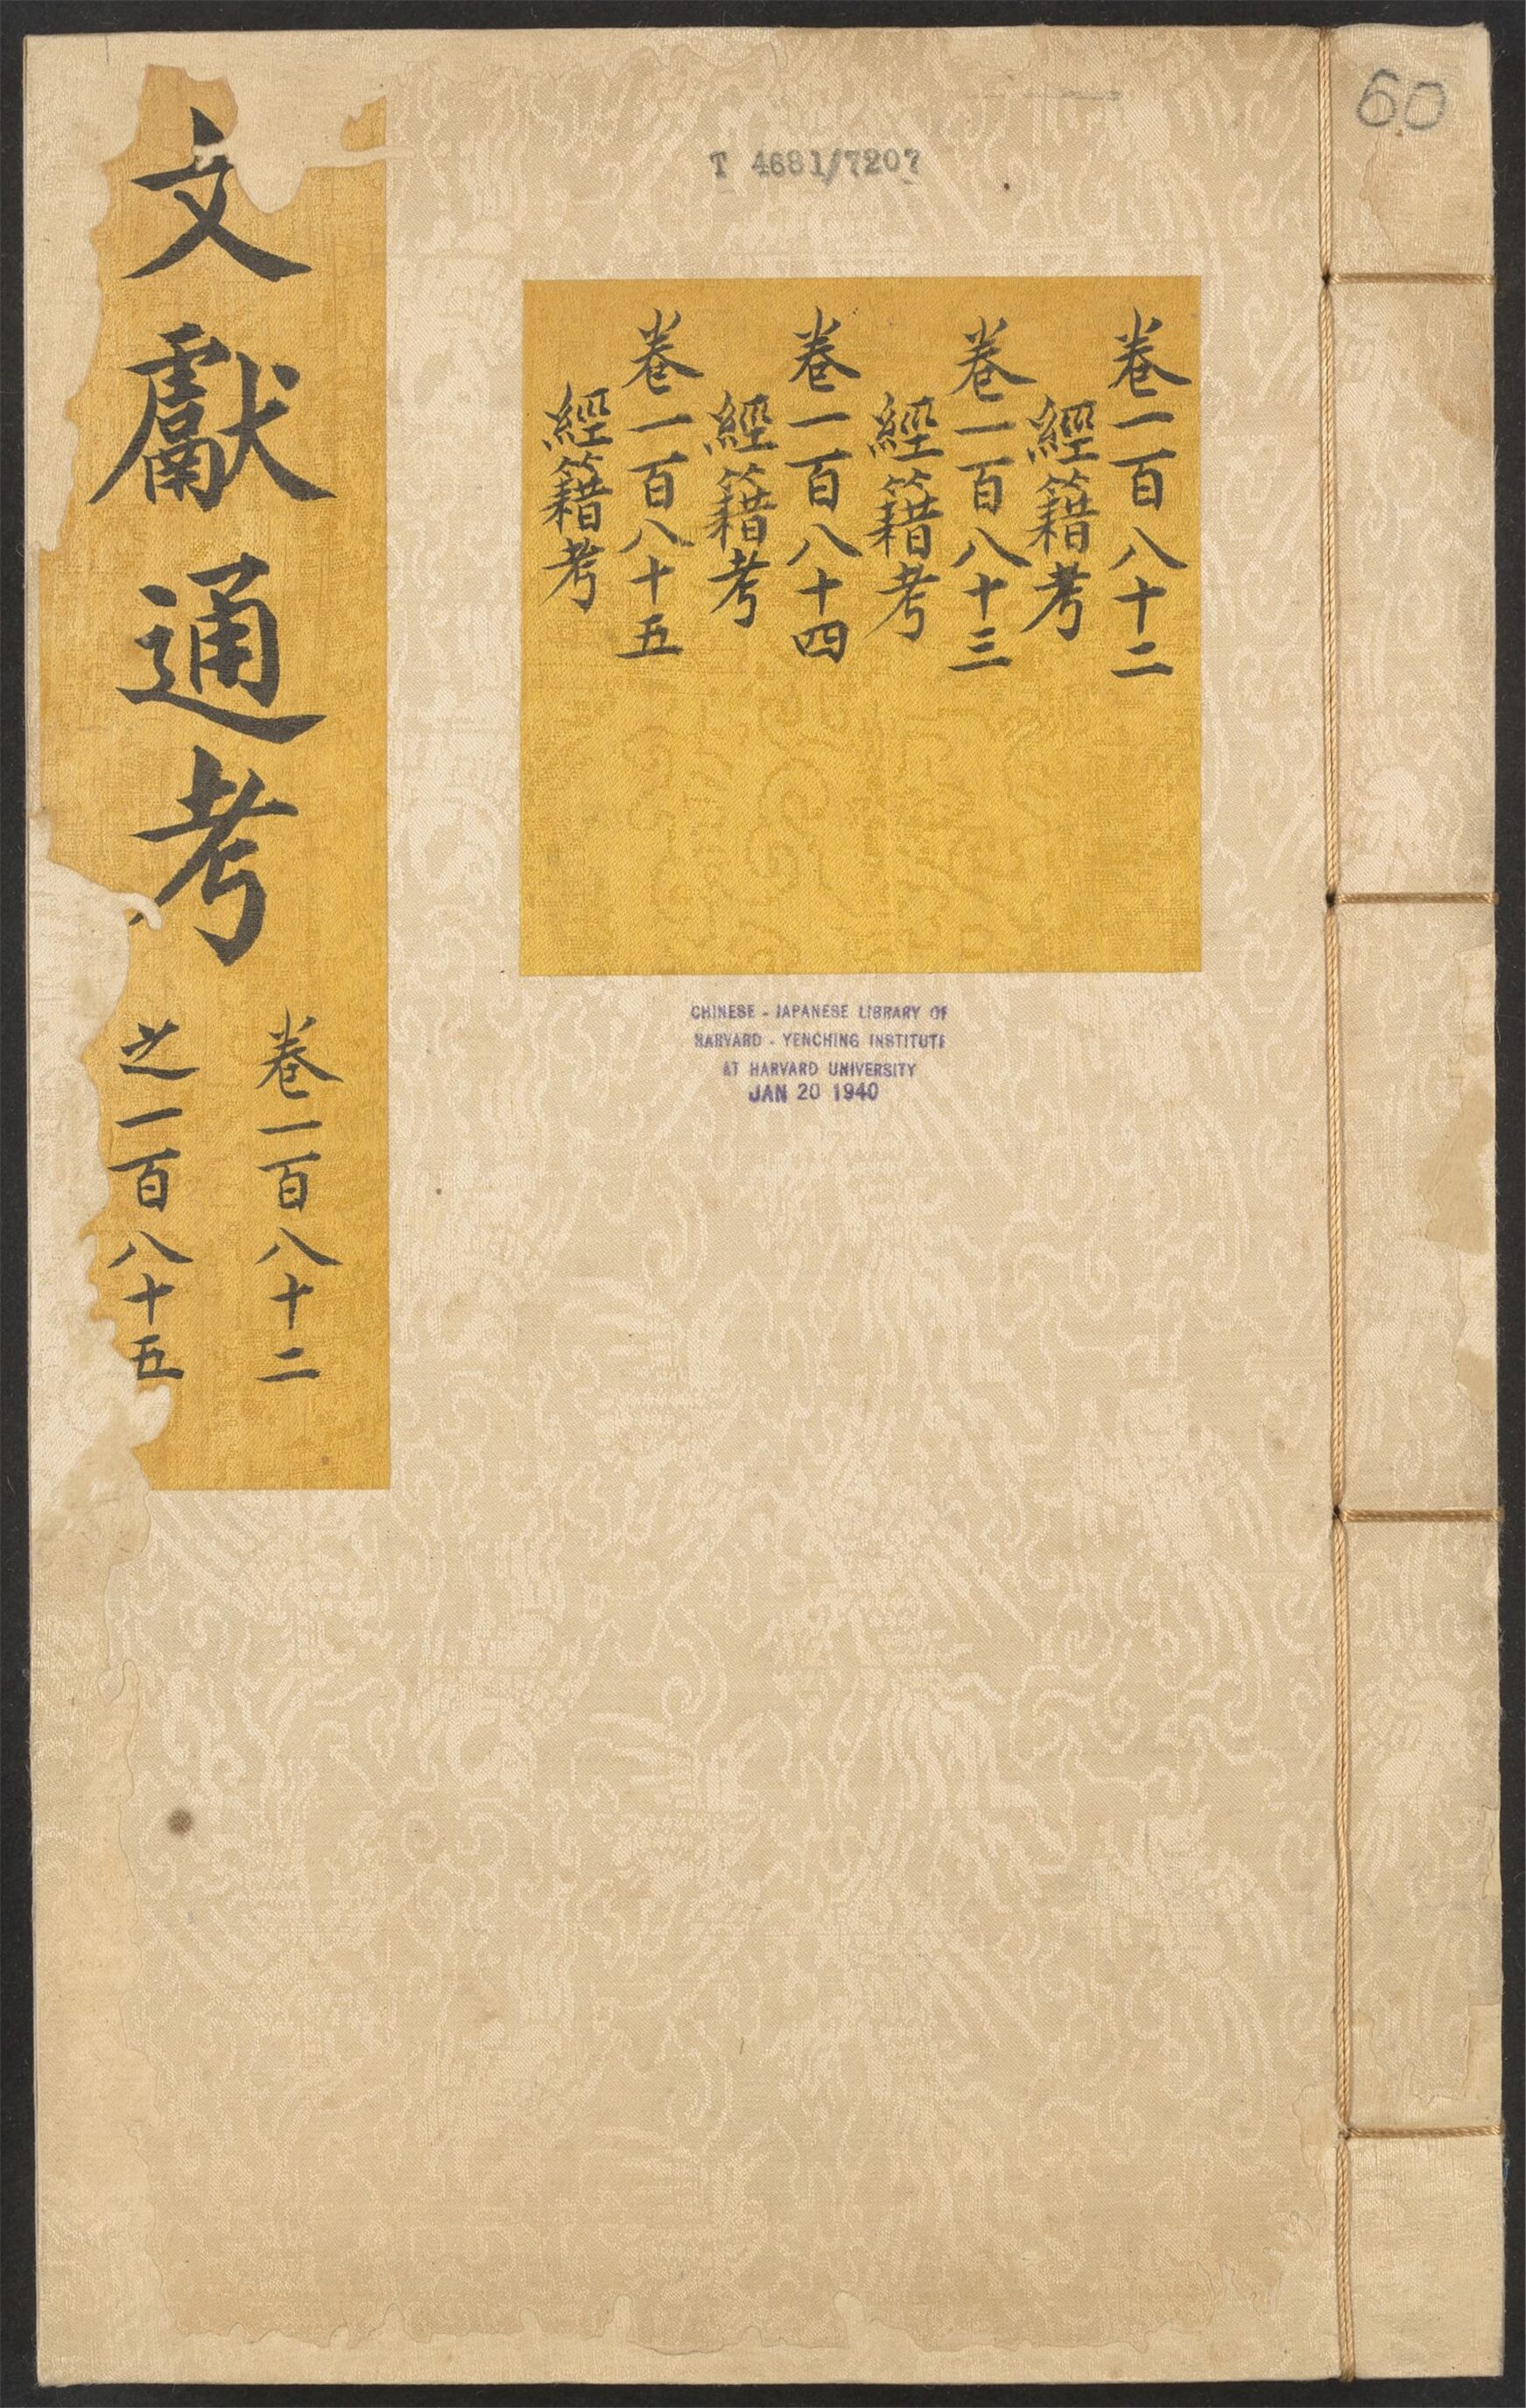 60
T 4681/7207
卷一百八十二
經籍考
卷一百八十三
經籍考
卷一百八十四
經籍考
卷一百八十五
經籍考
CHINESE - JAPANESE LIBRARY OF
HARVARD - YENCHING INSTITUTE
AT HARVARD UNIVERSITY
JAN 20 1940
文獻通考
卷一百八十二
之一百八十五